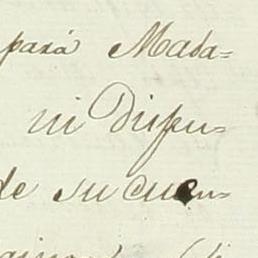 pará Mada=
ni Dispu=
de su cuen=